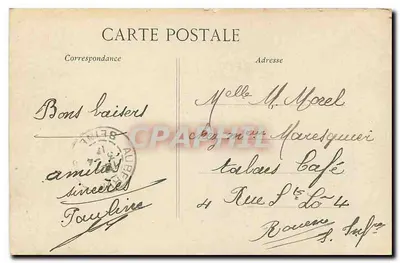 CARTE POSTALE
Correspondance
Adresse
Bons baisers
amitiés
sincères
Pauline
Melle M. Morel
chez Mr Maresquier
tabacs Café
4 Rue St Lô 4
Rouen
S. Infre
CARTAPHILE